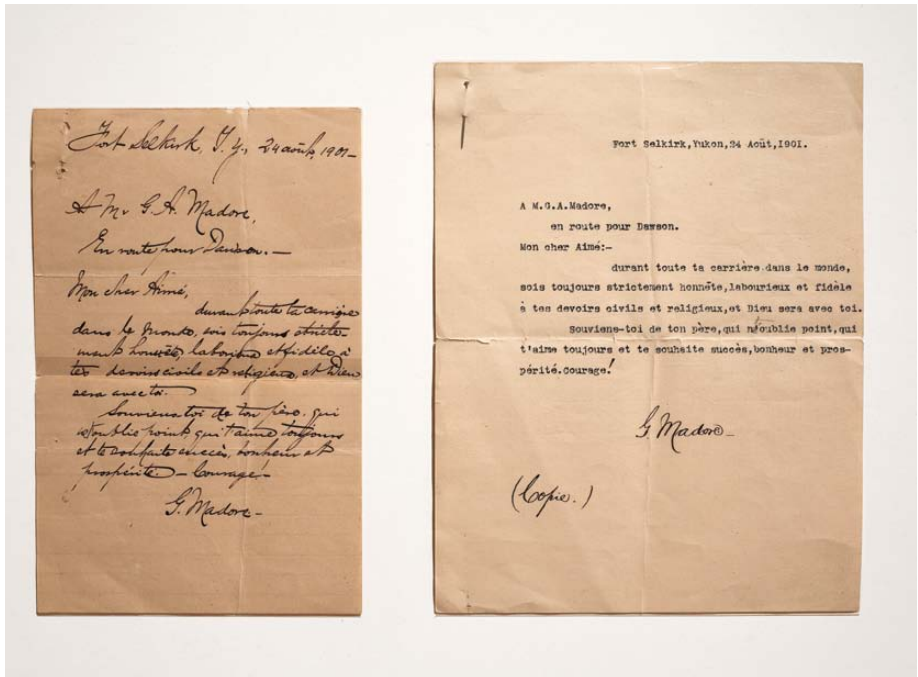 Fort Selkirk, T. Y., 24 août, 1901-
A Mr G. A. Madore,
En route pour Dawson. -
Mon cher Aimé,
durant toute ta carrière
dans le monde, sois toujours stricte-
ment honnête, laborieux et fidèle à
tes devoirs civils et religieux, et Dieu
sera avec toi.
Souviens toi de ton père, qui
n'oublie point, qui t'aime toujours
et te souhaite succès, bonheur et
prospérité. - Courage! -
G. Madore-
Fort Selkirk,Yukon,24 Août,1901.
A M.G.A.Madore,
en route pour Dawson.
Mon cher Aimé:-
durant toute ta carrière dans le monde,
sois toujours strictement honnête,labourieux et fidèle
à tes devoirs civils et religieux,et Dieu sera avec toi.
Souviens-toi de ton père,qui n'oublie point,qui
t'aime toujours et te souhaite succès,bonheur et pros-
périté.Courage!
G. Madore-
(Copie.)